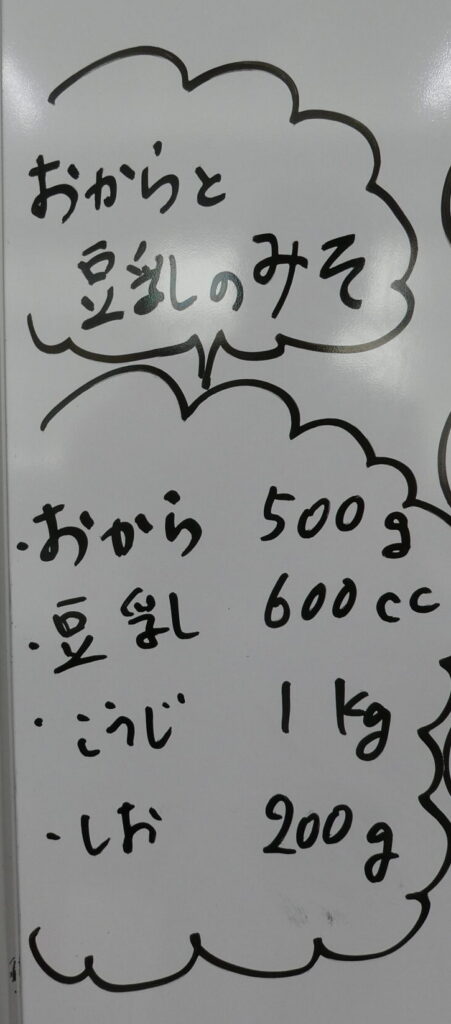 おからと
豆乳のみそ
・おから 500g
・豆乳 600cc
・こうじ 1kg
・しお 200g